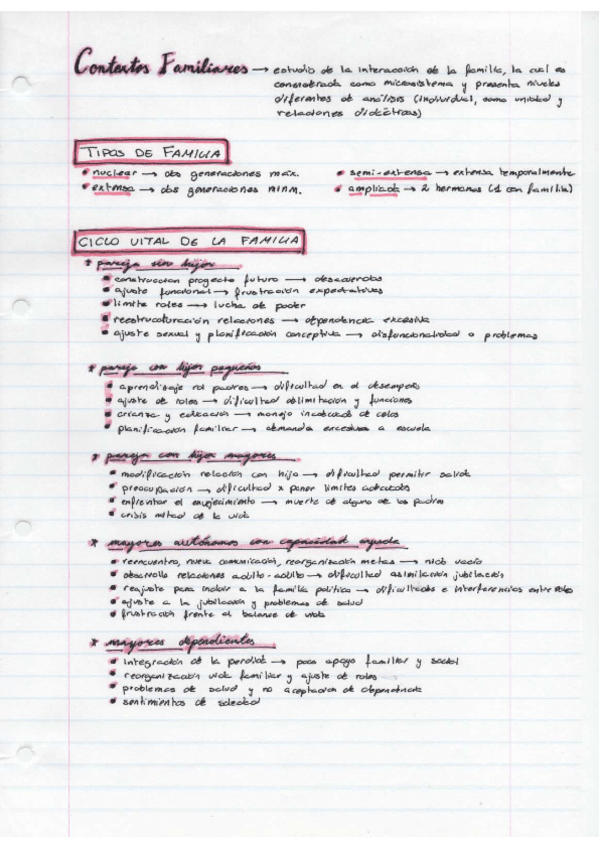 Contextos Familiares → estudio de la interacción de la familia, la cual es
considerada como microsistema y presenta niveles
diferentes de análisis (individual, como unidad y
relaciones diádicas)
TIPOS DE FAMILIA
• nuclear → dos generaciones máx. • semi-extensa → extensa temporalmente
• extensa → dos generaciones mínm. • ampliada → 2 hermanos (1 con familia)
CICLO VITAL DE LA FAMILIA
* pareja sin hijos
• construcción proyecto futuro → desacuerdos
• ajuste funcional → frustración expectativas
• límite roles → lucha de poder
• reestructuración relaciones → dependencia excesiva
• ajuste sexual y planificación conceptiva → disfuncionalidad o problemas
* pareja con hijos pequeños
• aprendizaje rol padres → dificultad en el desempeño
• ajuste de roles → dificultad delimitación y funciones
• crianza y educación → manejo inadecuado de celos
• planificación familiar → demanda excesiva a escuela
* pareja con hijos mayores
• modificación relación con hijo → dificultad permitir salida
• preocupación → dificultad x poner límites adecuados
• enfrentar el envejecimiento → muerte de alguno de los padres
• crisis mitad de la vida
* mayores autónomos con capacidad ayuda
• reencuentro, nueva comunicación, reorganización metas → nido vacío
• desarrollo relaciones adulto-adulto → dificultad asimilación jubilación
• reajuste para incluir a la familia política → dificultades e interferencias entre roles
• ajuste a la jubilación y problemas de salud
• frustración frente al balance de vida
* mayores dependientes
• integración de la pérdida → poco apoyo familiar y social
• reorganización vida familiar y ajuste de roles
• problemas de salud y no aceptación de dependencia
• sentimientos de soledad